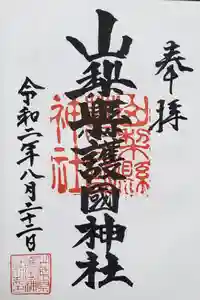 奉拝
山梨縣護國神社
令和二年八月二十三日
山梨縣
神社